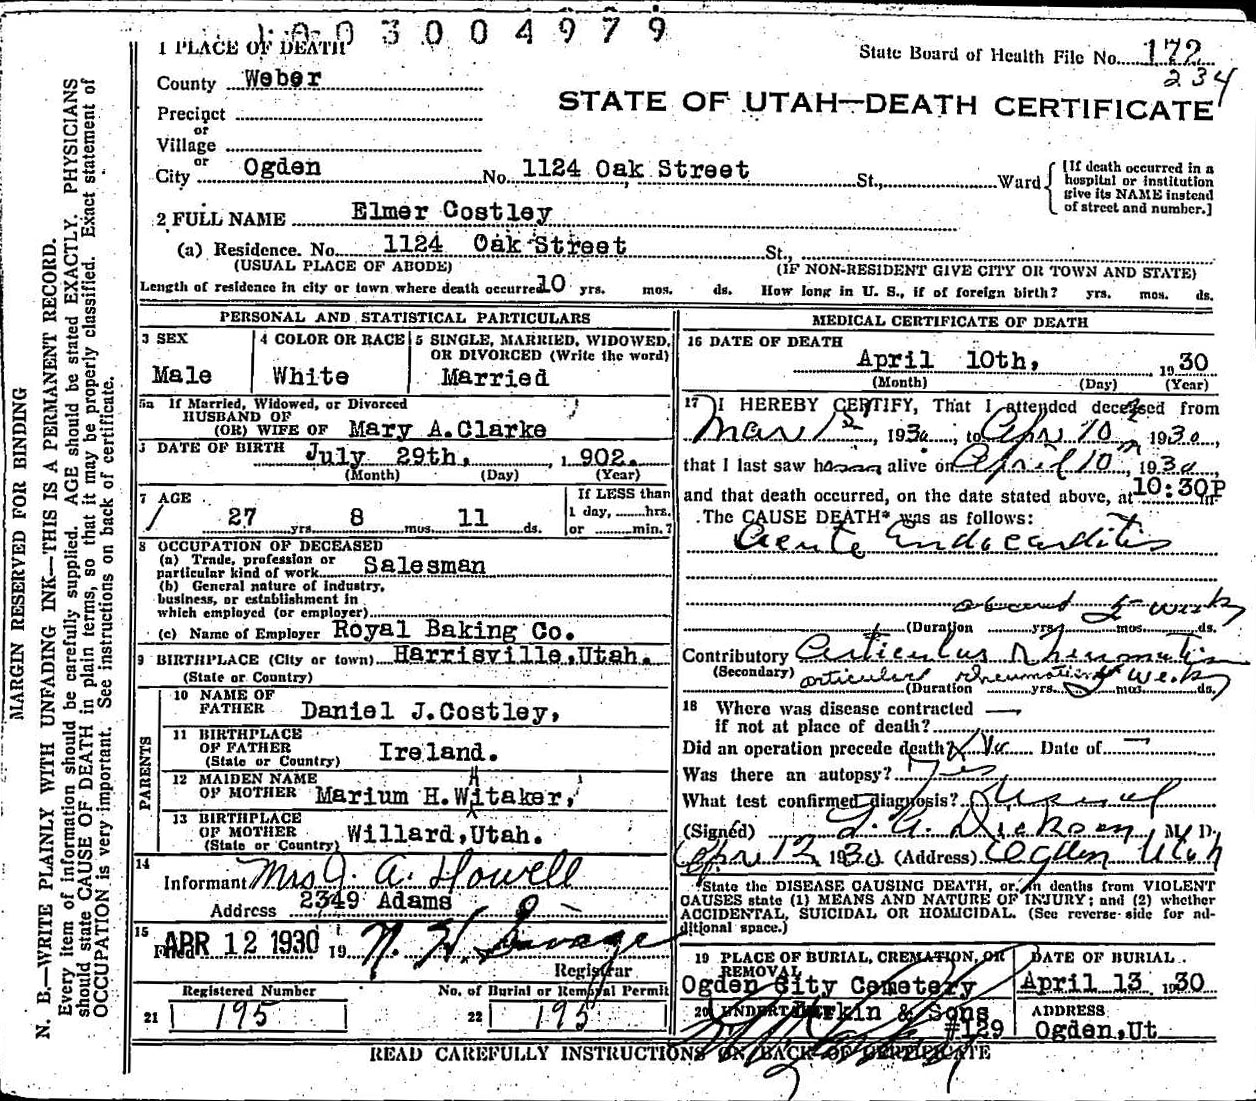 1003004979
1 PLACE OF DEATH
State Board of Health File No. 172
234
County Weber
STATE OF UTAH—DEATH CERTIFICATE
Precinct
or
Village
or
City Ogden No. 1124 Oak Street St., Ward
[If death occurred in a
hospital or institution
give its NAME instead
of street and number.]
2 FULL NAME Elmer Costley
(a) Residence. No. 1124 Oak Street St.,
(USUAL PLACE OF ABODE) (IF NON-RESIDENT GIVE CITY OR TOWN AND STATE)
Length of residence in city or town where death occurred 10 yrs. mos. ds. How long in U. S., if of foreign birth? yrs. mos. ds.
PERSONAL AND STATISTICAL PARTICULARS
3 SEX
Male
4 COLOR OR RACE
White
5 SINGLE, MARRIED, WIDOWED,
OR DIVORCED (Write the word)
Married
5a If Married, Widowed, or Divorced
HUSBAND OF
(OR) WIFE OF Mary A.Clarke
DATE OF BIRTH July 29th, 1902.
(Month) (Day) (Year)
7 AGE
27 yrs. 8 mos. 11 ds.
If LESS than
1 day, hrs.
or min.?
8 OCCUPATION OF DECEASED
(a) Trade, profession or
particular kind of work Salesman
(b) General nature of industry,
business, or establishment in
which employed (or employer)
(c) Name of Employer Royal Baking Co.
9 BIRTHPLACE (City or town) Harrisville,Utah.
(State or Country)
PARENTS
10 NAME OF
FATHER Daniel J.Costley,
11 BIRTHPLACE
OF FATHER Ireland.
(State or Country)
12 MAIDEN NAME
OF MOTHER Marium H.WHitaker,
13 BIRTHPLACE
OF MOTHER Willard,Utah.
(State or Country)
14
Informant Mrs J. A. Howell
Address 2349 Adams
15
Filed APR 12 1930 19
Registrar
Registered Number
21 195
No. of Burial or Removal Permit
22 195
MEDICAL CERTIFICATE OF DEATH
16 DATE OF DEATH
April 10th, 1930
(Month) (Day) (Year)
17 I HEREBY CERTIFY, That I attended deceased from
Mar 1st, 1930, to Apr 10, 1930,
that I last saw h alive on April 10, 1930,
and that death occurred, on the date stated above, at 10:30P m
The CAUSE DEATH* was as follows:
Acute Endocarditis
about 2 weeks
(Duration yrs. mos. ds.
Contributory Articular Rheumatism
(Secondary) articular rheumatism weeks
(Duration yrs. mos. ds.
18 Where was disease contracted —
if not at place of death?
Did an operation precede death? No Date of —
Was there an autopsy? Yes
What test confirmed diagnosis? Usual
(Signed) Dickson M. D.
Apr 12 1930 (Address) Ogden Utah
*State the DISEASE CAUSING DEATH, or, in deaths from VIOLENT
CAUSES state (1) MEANS AND NATURE OF INJURY; and (2) whether
ACCIDENTAL, SUICIDAL OR HOMICIDAL. (See reverse side for ad-
ditional space.)
19 PLACE OF BURIAL, CREMATION, OR
REMOVAL
Ogden City Cemetery
DATE OF BURIAL
April 13 1930
20 UNDERTAKER
Larkin & Sons
#129
ADDRESS
Ogden,Ut
READ CAREFULLY INSTRUCTIONS ON BACK OF CERTIFICATE
MARGIN RESERVED FOR BINDING
N. B.—WRITE PLAINLY WITH UNFADING INK—THIS IS A PERMANENT RECORD.
Every item of information should be carefully supplied. AGE should be stated EXACTLY. PHYSICIANS
should state CAUSE OF DEATH in plain terms, so that it may be properly classified. Exact statement of
OCCUPATION is very important. See instructions on back of certificate.